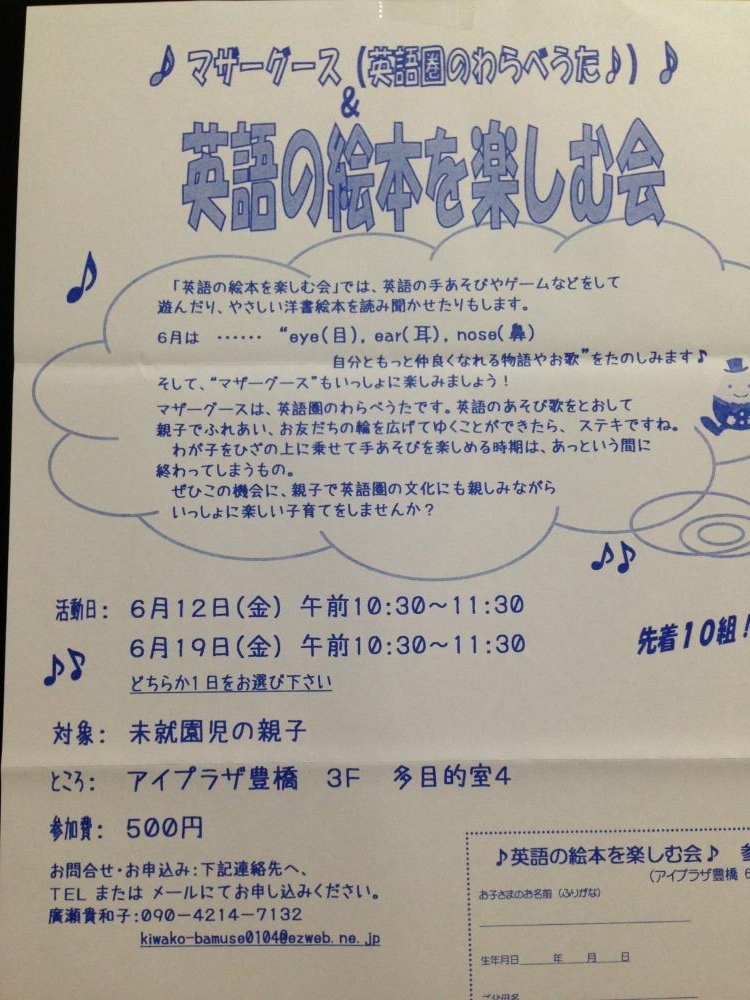 ♪ マザーグース (英語圏のわらべうた♪) ♪
&
英語の絵本を楽しむ会
「英語の絵本を楽しむ会」では、英語の手あそびやゲームなどをして
遊んだり、やさしい洋書絵本を読み聞かせたりもします。
6月は ・・・・・・ “eye(目), ear(耳), nose(鼻)
自分ともっと仲良くなれる物語やお歌”をたのしみます♪
そして、“マザーグース”もいっしょに楽しみましょう！
マザーグースは、英語圏のわらべうたです。英語のあそび歌をとおして
親子でふれあい、お友だちの輪を広げてゆくことができたら、ステキですね。
わが子をひざの上に乗せて手あそびを楽しめる時期は、あっという間に
終わってしまうもの。
ぜひこの機会に、親子で英語圏の文化にも親しみながら
いっしょに楽しい子育てをしませんか？
活動日: 6月12日(金) 午前10:30～11:30
6月19日(金) 午前10:30～11:30
先着10組！
どちらか1日をお選び下さい
対象: 未就園児の親子
ところ: アイプラザ豊橋 3F 多目的室4
参加費: 500円
お問合せ・お申込み:下記連絡先へ、
TEL または メールにてお申し込みください。
廣瀬貴和子:090-4214-7132
kiwako-bamuse0104@ezweb.ne.jp
♪英語の絵本を楽しむ会♪ 参
(アイプラザ豊橋 6
お子さまのお名前 (ふりがな)
生年月日 年 月 日
ご父母名